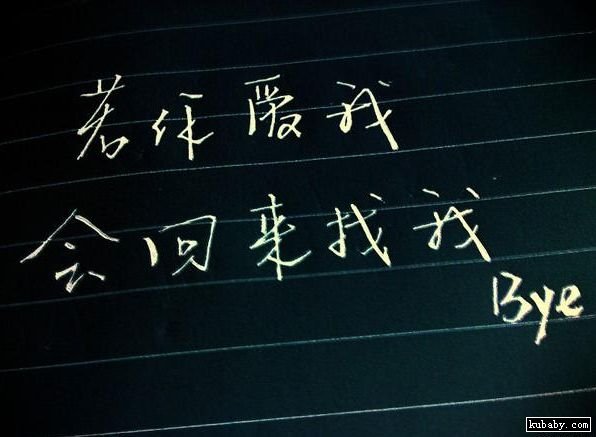 若你爱我
会回来找我
Bye
kubaby.com